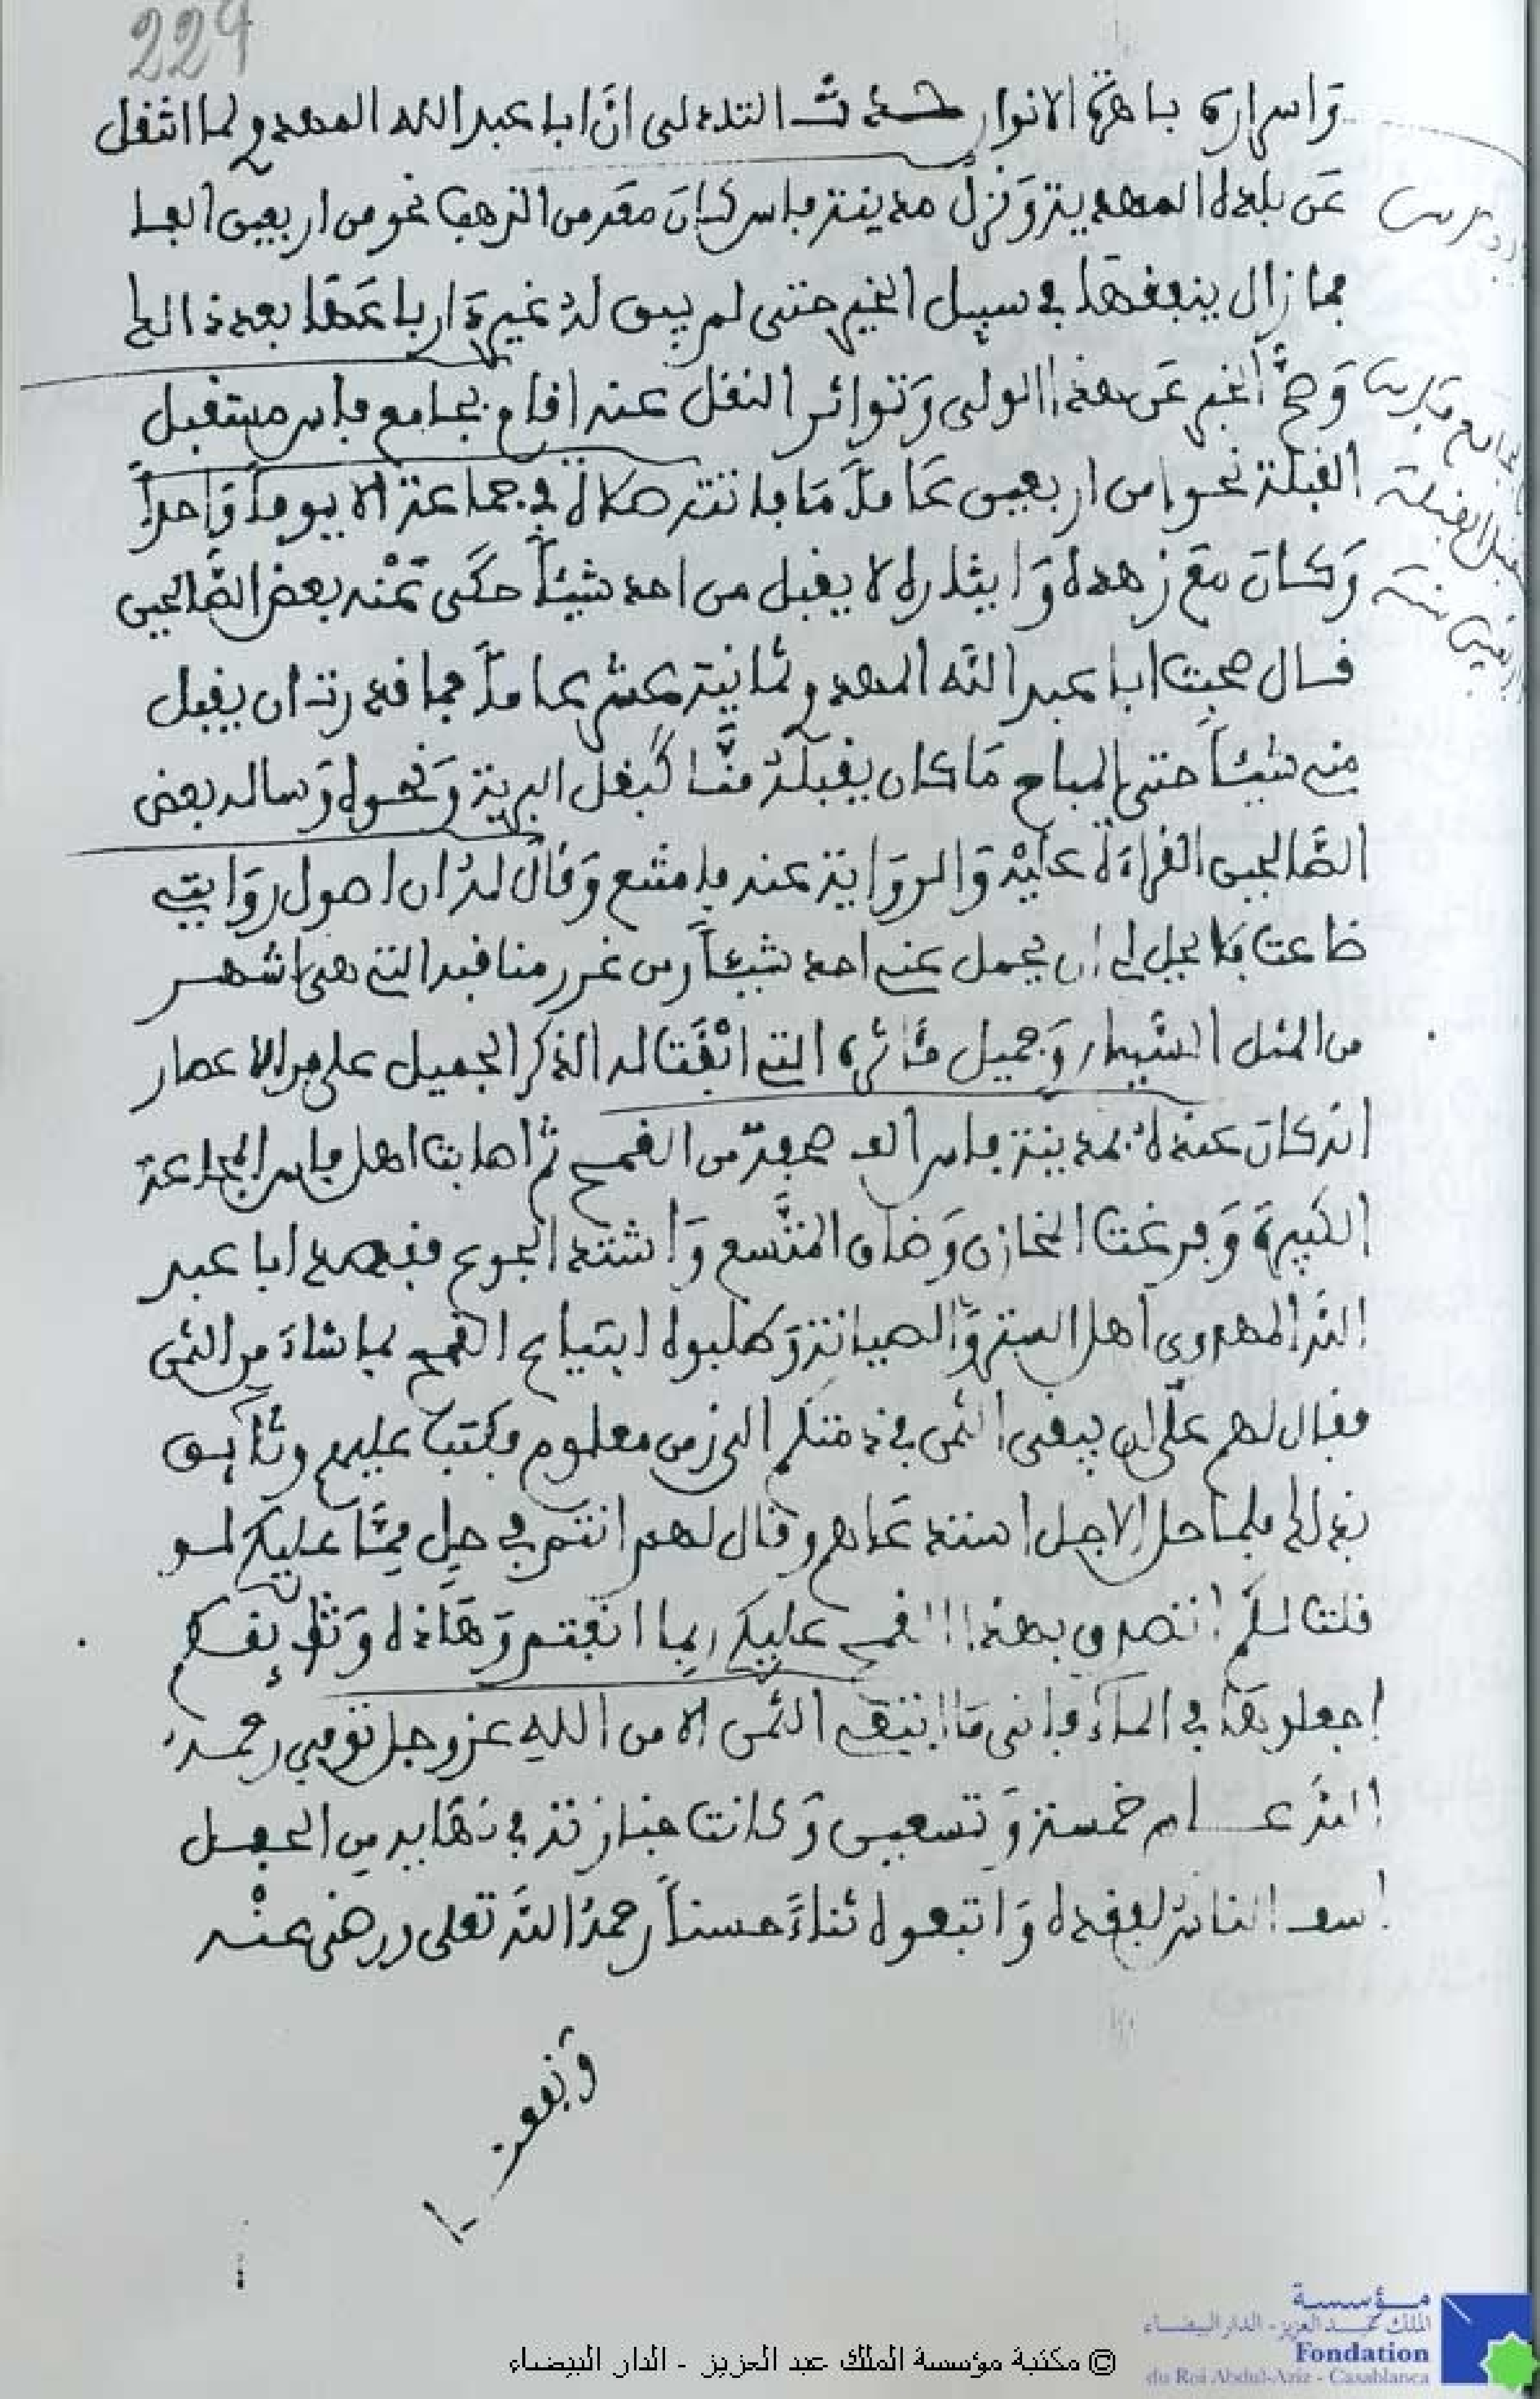 224
وَاسراره باهرة الانوار حدث التادلى انَّ ابا عبد الله المهدوي لما انتقل
عَن بلده المهدية وَنزل مدينة فاس كانَ معَه من الذهب نحو من اربعين الفا
فما زال ينفقها في سبيل الخير حتى لم يبق لهُ غير دَار باعَها بعد ذالك
وَصحَّ الخبر عَن هذا الولى وَتواتر النقل عنه اقام بجامع فاس مستقبل
القبلة نحوا من اربعين عَاماً مَا فاتته صلاة في جماعة الا يوماً وَاحداً
وَكانَ معَ زهده وَايثاره لا يقبل من احد شيئاً حكَى عَنْه بعض الصَّالحين
قال صحبت ابا عبد الله المهدوي ثمانية عشر عاماً فما قدرت ان يقبل
منى شيئاً حتى المباح مَا كان يقبلهُ منَّا كبقل البرية وَنحوه وَساله بعض
الصَّالحين القراءة عليْه وَالروَاية عنه فامتنع وَقالَ لهُ ان اصول روَايتى
ضاعت فلا يحل لى ان يحمل عنى احد شيئاً ومن غرر مناقبه التى هى اشهر
من المثل السَّيار وَجميل مَئاثره التى ابْقَت له الذكر الجميل على مر الاعصار
انه كانَ عنده بمدينة فاس الف صحفة من القمح ثم اصابت اهل فاس المجاعة
الكبيرة وَفرغت المخازن وَضاق المتَّسع وَاشتد الجوع فقصد ابا عبد
الله المهدوى اهل الستر وَالصيانة وَطلبوه ابتياع القمح بما شاءَ من الثمن
فقال لهم علَى ان يبقى الثمن في ذمتكم الى زمن معلوم فكتب عليهم وثائق
بذلك فلما حل الاجل استدعَاهم وقال لهم انتم في حِل ممَّا عليكم لو
قلت لكم اتصدق بهذا القمح عليكم ربما انفتم وَهَاذه وَثائِقكم
اجعلوهَا في الماء فانى مَا ابتغى الثمن الا من الله عز وجل توفي رحمهُ
الله عام خمسة وَتسعين وَكانت جنازته في نهَاية من الحفل
اسف الناس لفقده وَاتبعوه ثناءً حسناً رحمهُ الله تعلى ورضى عنْه
وَنفعنا
© مكتبة مؤسسة الملك عبد العزيز - الدار البيضاء
مؤسسة
الملك عبد العزيز - الدار البيضاء
Fondation
du Roi Abdul-Aziz - Casablanca